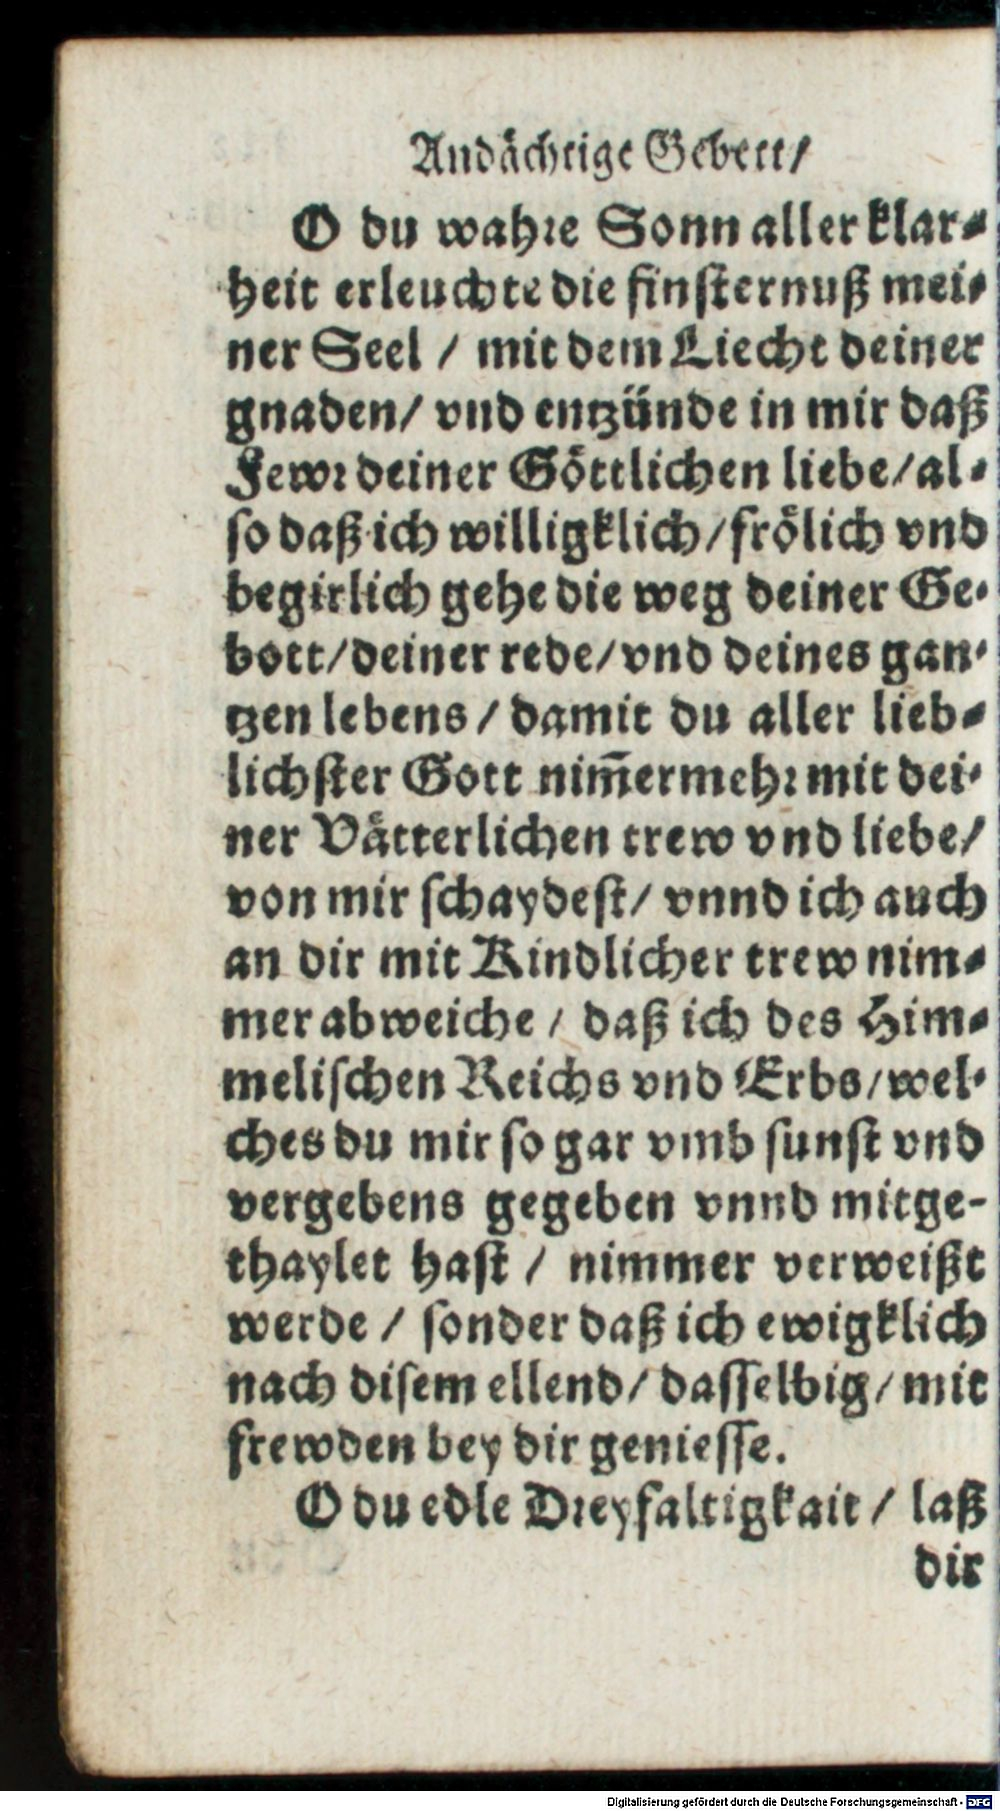 Andächtige Gebett/
O du wahre Sonn aller klar-
heit erleuchte die finsternuß mei-
ner Seel / mit dem Liecht deiner
gnaden/ vnd entzünde in mir daß
Fewr deiner Göttlichen liebe/ al-
so daß ich willigklich/ frölich vnd
begirlich gehe die weg deiner Ge-
bott/ deiner rede/ vnd deines gan-
tzen lebens / damit du aller lieb-
lichster Gott nim̃ermehr mit dei-
ner Vätterlichen trew vnd liebe/
von mir schaydest/ vnnd ich auch
an dir mit Kindlicher trew nim-
mer abweiche / daß ich des Him-
melischen Reichs vnd Erbs/ wel-
ches du mir so gar vmb sunst vnd
vergebens gegeben vnnd mitge-
thaylet hast / nimmer verweißt
werde / sonder daß ich ewigklich
nach disem ellend/ dasselbig/ mit
frewden bey dir geniesse.
O du edle Dreyfaltigkait / laß
dir
Digitalisierung gefördert durch die Deutsche Forschungsgemeinschaft - DFG